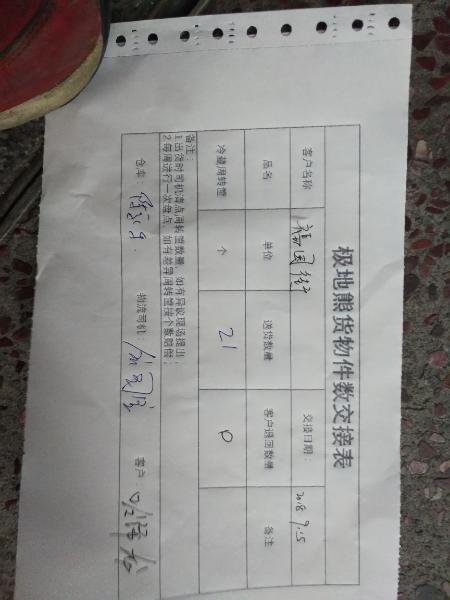 极地熊货物件数交接表
客户名称 福国店 交接日期： 2018 9.15
品名 单位 送货数量 客户退回数量 备注
冷藏周转筐 个 21 0
备注：
1.出货时司机清点周转筐数量，如有异议现场提出；
2.每周进行一次盘点，如有差异周转筐按个数赔偿；
仓库： 物流司机： 客户：